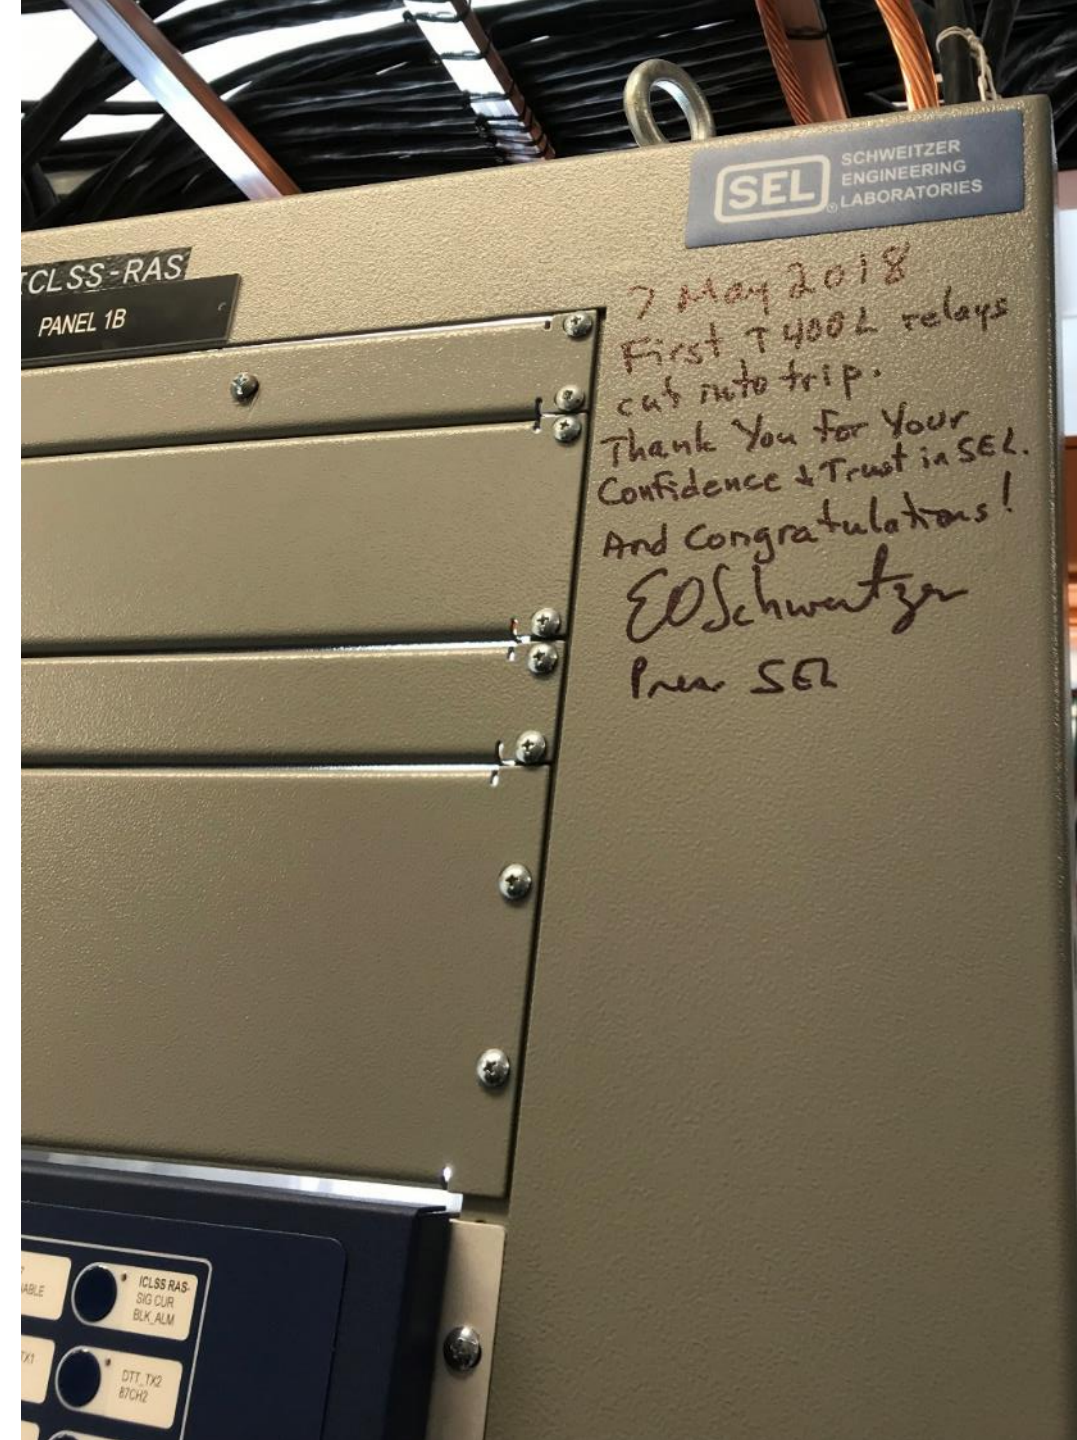 SEL
SCHWEITZER
ENGINEERING
LABORATORIES
ICLSS-RAS
PANEL 1B
7 May 2018
First T400L relays
cut into trip.
Thank You for Your
Confidence & Trust in SEL.
And Congratulations!
EOSchweitzer
Pres SEL
ABLE
ICLSS RAS-
SIG CUR
BLK_ALM
TX1
DTT_TX2
87CH2